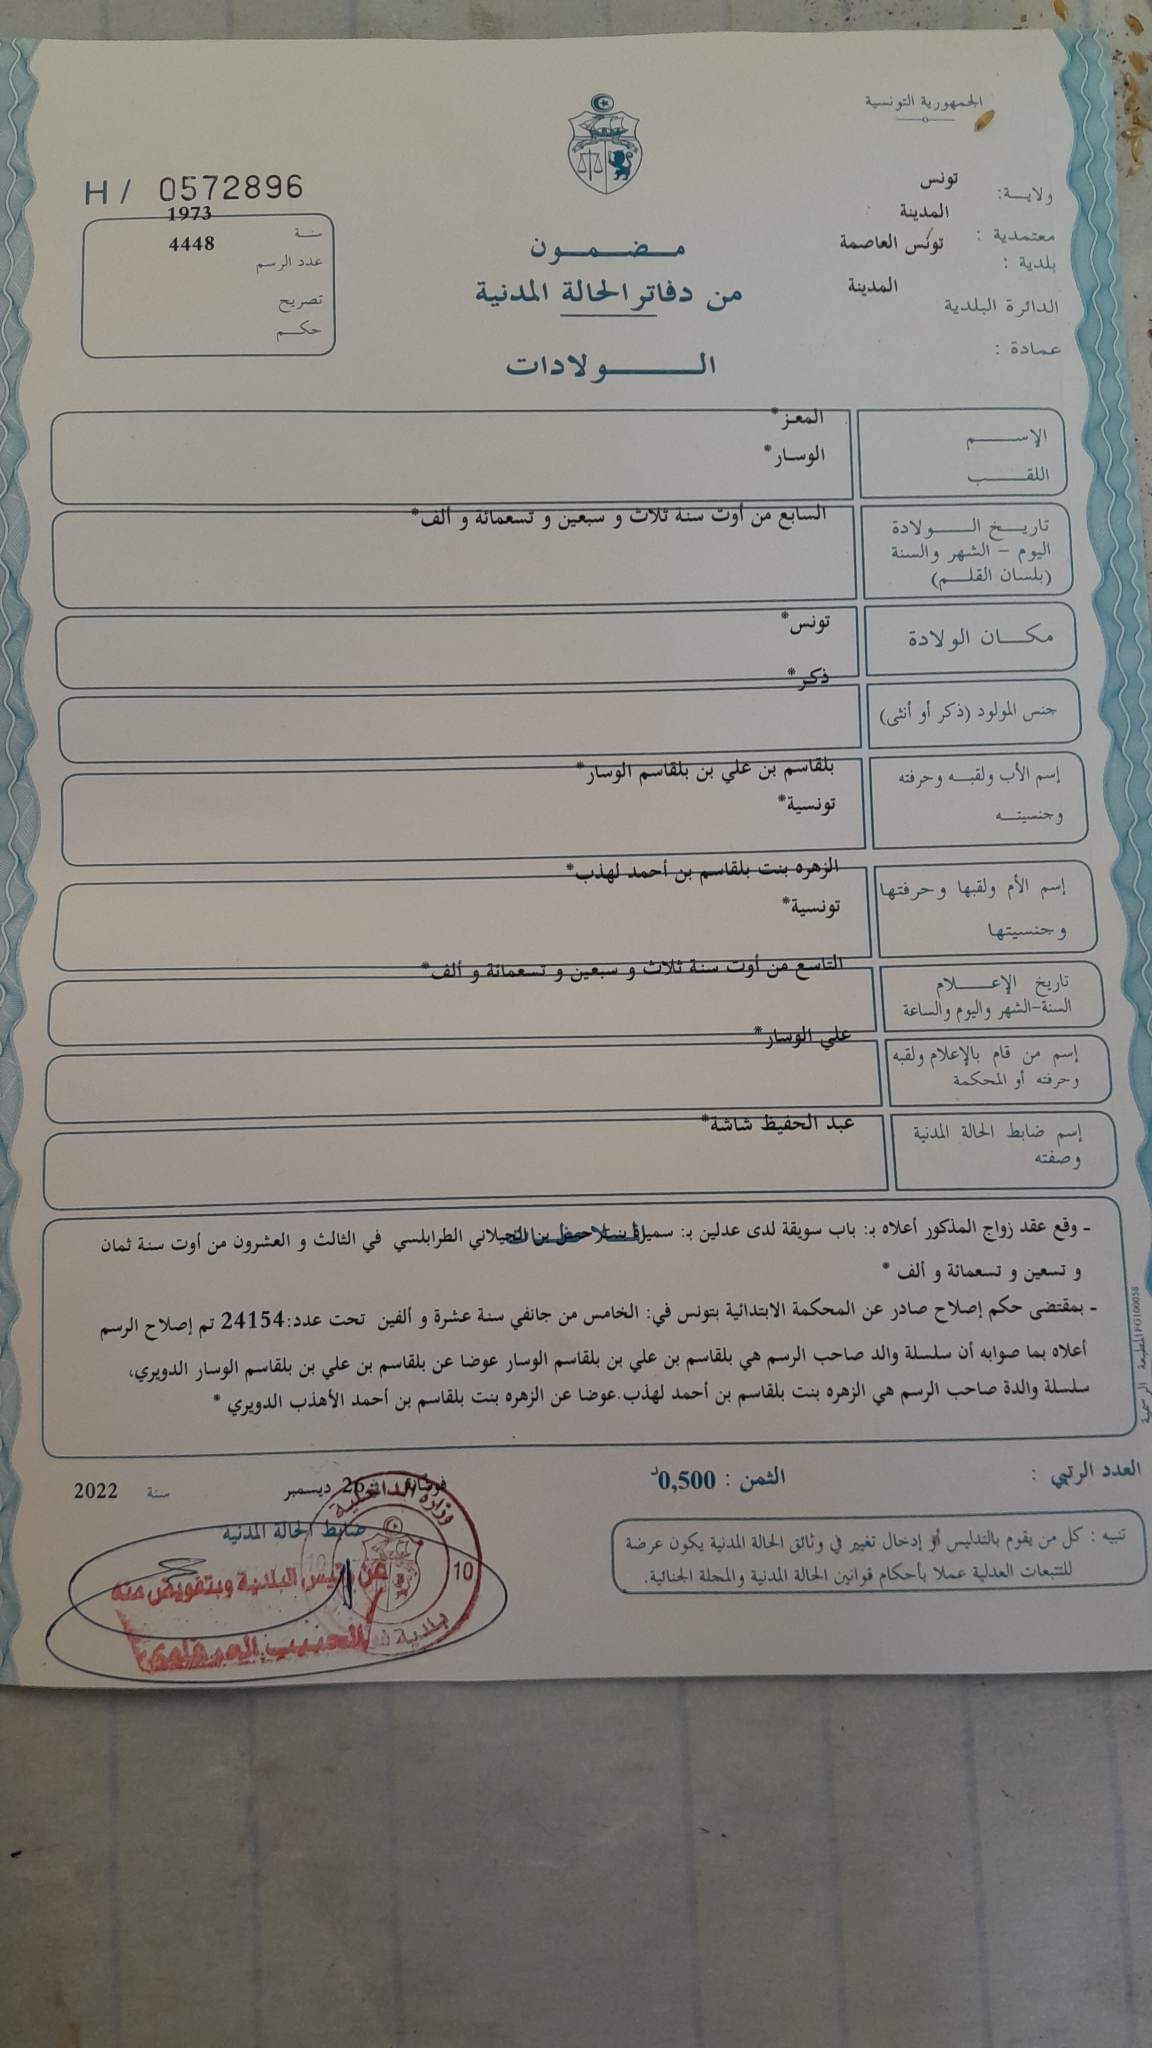 الجمهورية التونسية
ولاية: تونس
معتمدية : المدينة
بلدية : تونس العاصمة
الدائرة البلدية المدينة
عمادة :
H / 0572896
سنة 1973
عدد الرسم 4448
تصريح
حكم
مضمون
من دفاتر الحالة المدنية
الولادات
الإسم المعز*
اللقب الوسار*
تاريخ الولادة السابع من أوت سنة ثلاث و سبعين و تسعمائة و ألف*
اليوم - الشهر والسنة
(بلسان القلم)
مكان الولادة تونس*
جنس المولود (ذكر أو أنثى) ذكر*
إسم الأب ولقبه وحرفته بلقاسم بن علي بن بلقاسم الوسار*
وجنسيته تونسية*
إسم الأم ولقبها وحرفتها الزهره بنت بلقاسم بن أحمد لهذب*
وجنسيتها تونسية*
تاريخ الإعلام التاسع من أوت سنة ثلاث و سبعين و تسعمائة و ألف*
السنة-الشهر واليوم والساعة
إسم من قام بالإعلام ولقبه علي الوسار*
وحرفته أو المحكمة
إسم ضابط الحالة المدنية عبد الحفيظ شاشة*
وصفته
- وقع عقد زواج المذكور أعلاه بـ: باب سويقة لدى عدلين بـ: سميرة بنت بن الجيلاني الطرابلسي في الثالث و العشرون من أوت سنة ثمان
و تسعين و تسعمائة و ألف *
- بمقتضى حكم إصلاح صادر عن المحكمة الابتدائية بتونس في: الخامس من جانفي سنة عشرة و ألفين تحت عدد:24154 تم إصلاح الرسم
أعلاه بما صوابه أن سلسلة والد صاحب الرسم هي بلقاسم بن علي بن بلقاسم الوسار عوضا عن بلقاسم بن علي بن بلقاسم الوسار الدويري،
سلسلة والدة صاحب الرسم هي الزهره بنت بلقاسم بن أحمد لهذب.عوضا عن الزهره بنت بلقاسم بن أحمد الأهذب الدويري *
المطبعة الرسمية PG100058
العدد الرتبي :
الثمن : 0,500د
26 ديسمبر سنة 2022
ضابط الحالة المدنية
تنبيه : كل من يقوم بالتدليس أو إدخال تغيير في وثائق الحالة المدنية يكون عرضة
للتتبعات العدلية عملا بأحكام قوانين الحالة المدنية والمجلة الجنائية.
وزارة الداخلية
10
بلدية
عن رئيس البلدية وبتفويض منه
الحبيب